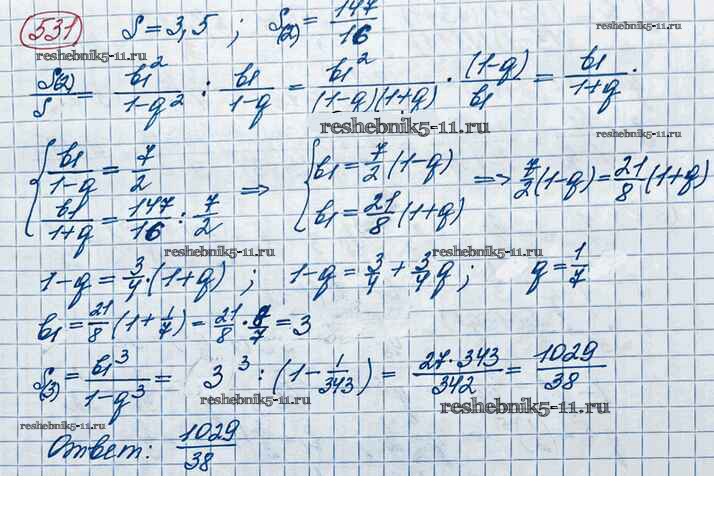 531 S = 3,5 ; S(2) = 147/16
reshebnik5-11.ru
reshebnik5-11.ru
S(2)/S = b1²/(1-q²) : b1/(1-q) = b1²/((1-q)(1+q)) · (1-q)/b1 = b1/(1+q).
reshebnik5-11.ru
reshebnik5-11.ru
{ b1/(1-q) = 7/2 ⇒ { b1 = 7/2 (1-q) ⇒ 7/2 (1-q) = 21/8 (1+q)
b1/(1+q) = 147/16 : 7/2 b1 = 21/8 (1+q)
reshebnik5-11.ru
reshebnik5-11.ru
1-q = 3/4 · (1+q) ; 1-q = 3/4 + 3/4 q ; q = 1/7
b1 = 21/8 (1 + 1/7) = 21/8 · 8/7 = 3
S(3) = b1³/(1-q³) = 3³ : (1 - 1/343) = 27·343/342 = 1029/38
reshebnik5-11.ru
reshebnik5-11.ru
reshebnik5-11.ru
Ответ: 1029/38